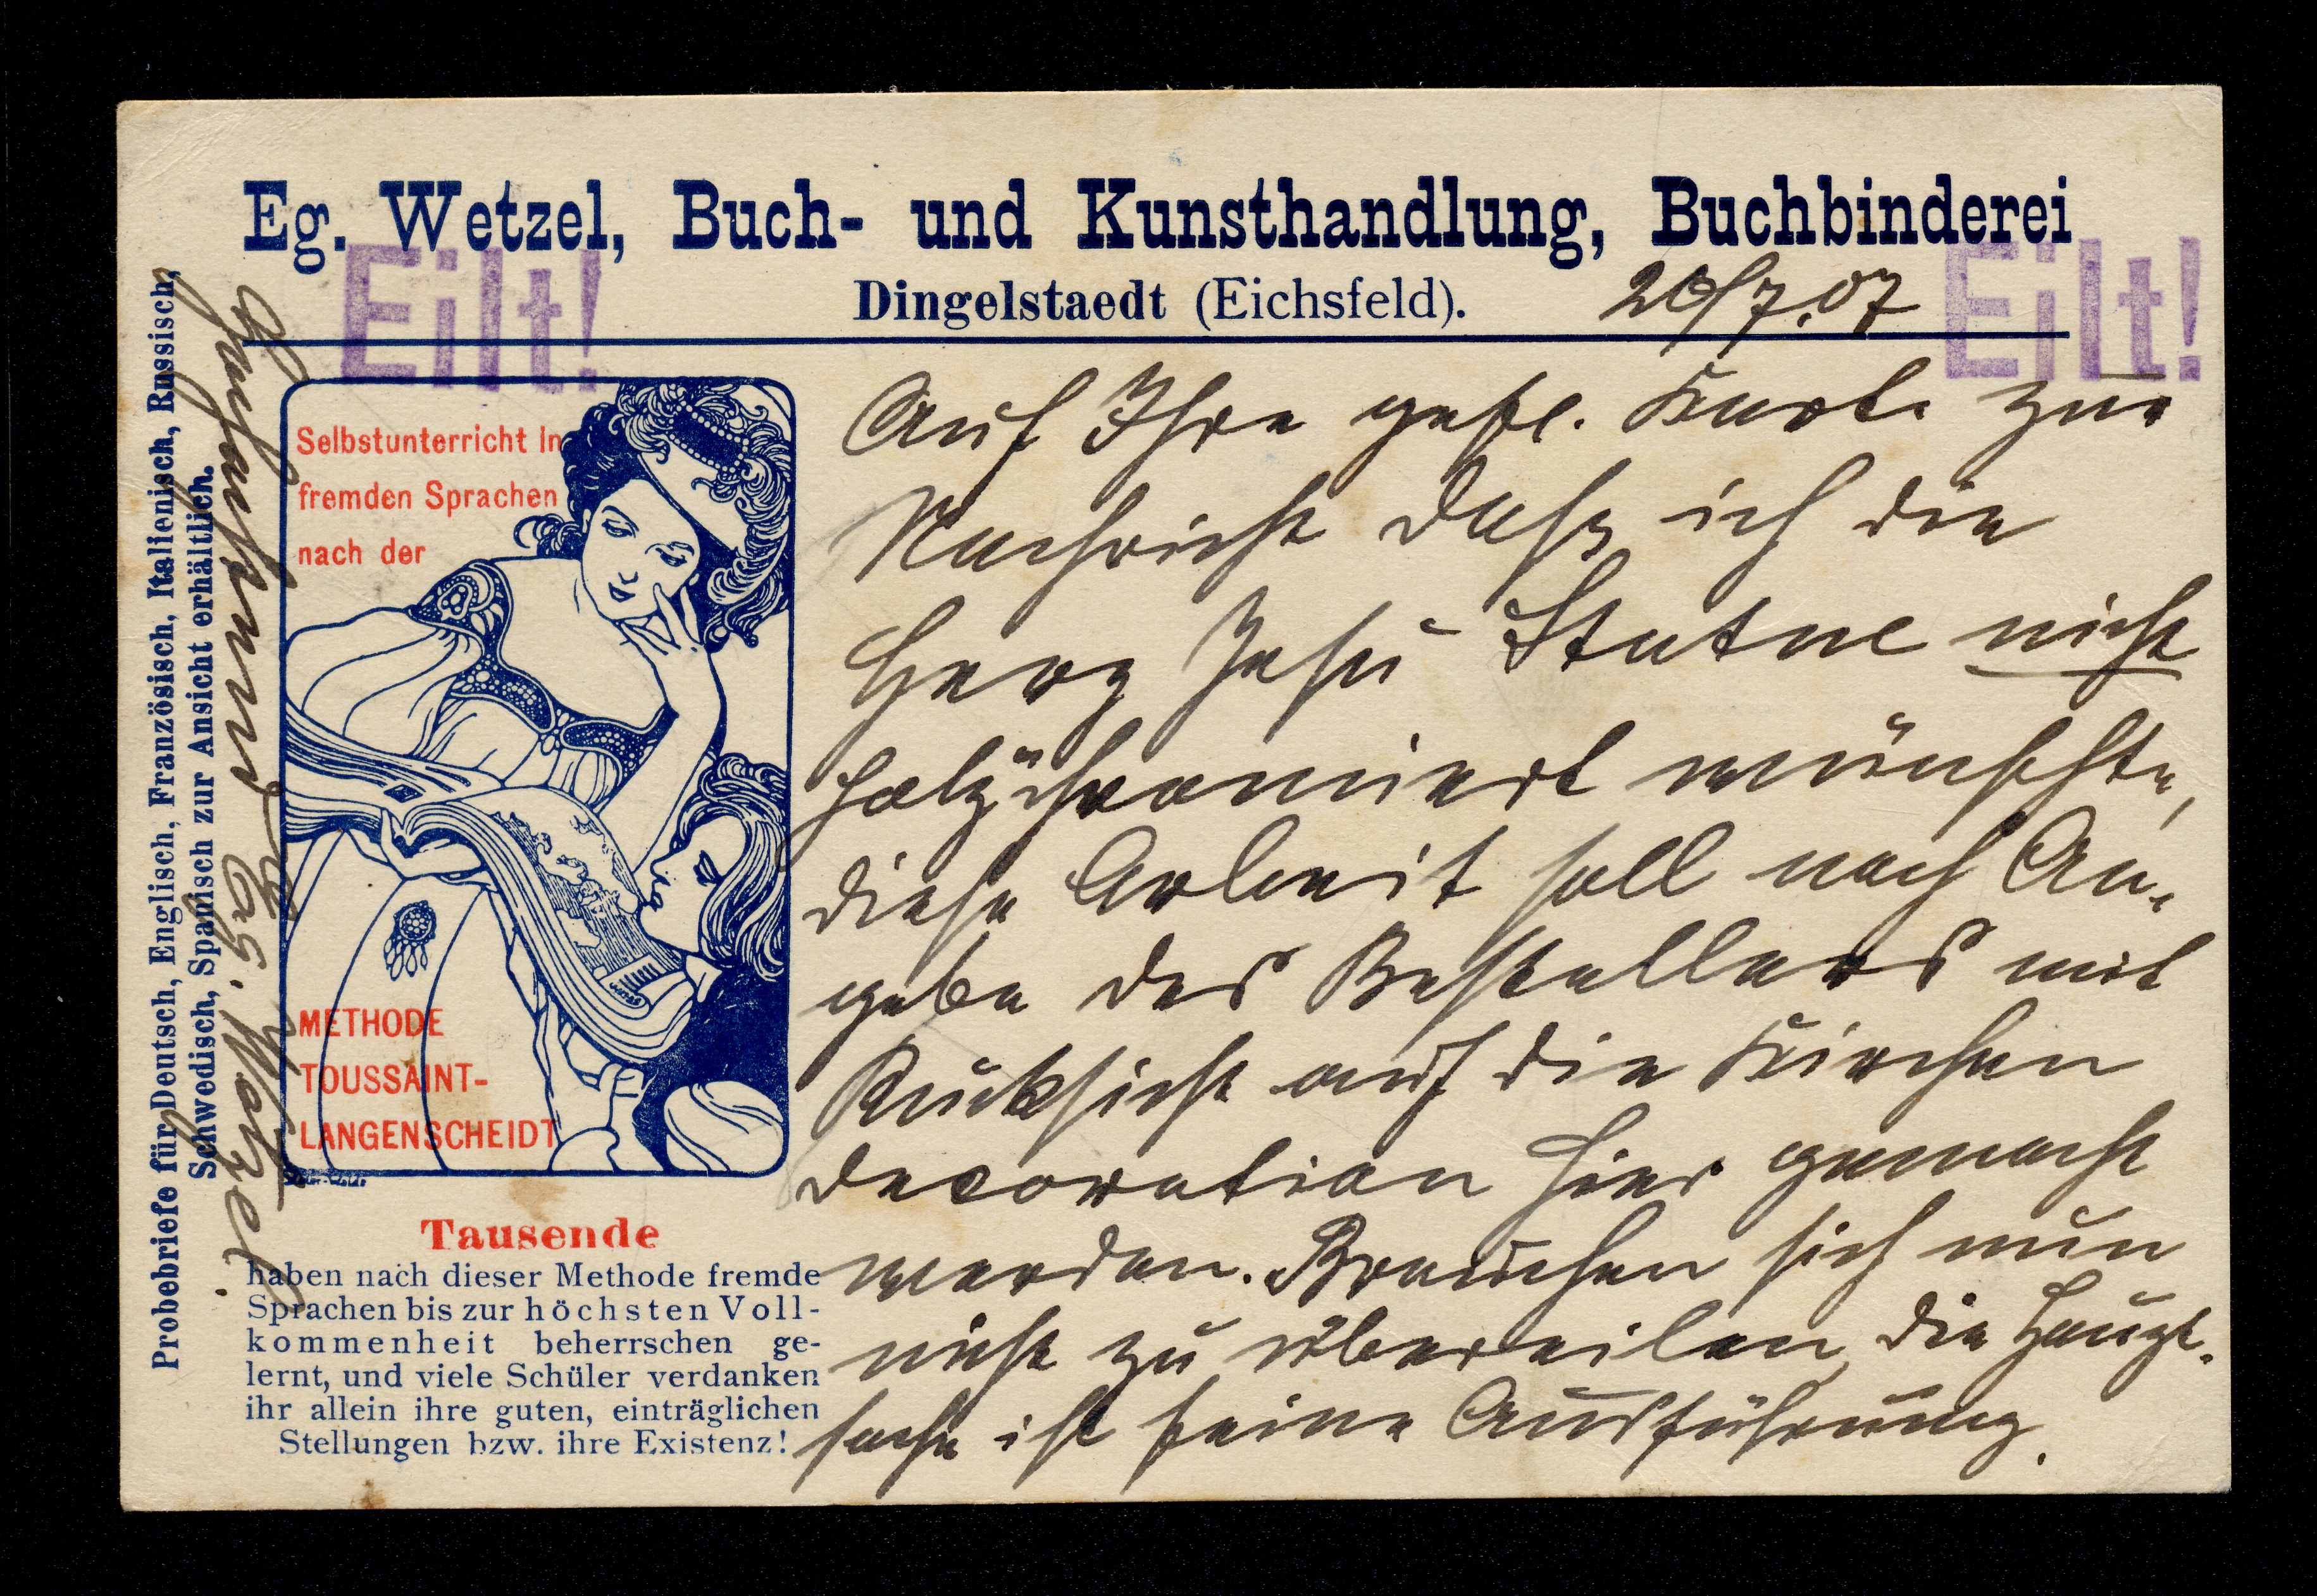 Eg. Wetzel, Buch- und Kunsthandlung, Buchbinderei
Eilt! Eilt!
Dingelstaedt (Eichsfeld). 20/7.07
Auf Ihre gefl. Karte zur
Nachricht daß ich die
Herz Jesu Statue nicht
polychromiert wünschte,
diese Arbeit soll nach An-
gabe des Bestellers mit
Rücksicht auf die Kirchen
decoration hier gemacht
werden. Brauchen sich nun
nicht zu übereilen, die Haupt-
sache ist feine Ausführung.
Hochachtungsvoll
Eg. Wetzel.
Probebriefe für Deutsch, Englisch, Französisch, Italienisch, Russisch,
Schwedisch, Spanisch zur Ansicht erhältlich.
Selbstunterricht in
fremden Sprachen
nach der
METHODE
TOUSSAINT-
LANGENSCHEIDT
Tausende
haben nach dieser Methode fremde
Sprachen bis zur höchsten Voll-
kommenheit beherrschen ge-
lernt, und viele Schüler verdanken
ihr allein ihre guten, einträglichen
Stellungen bzw. ihre Existenz!